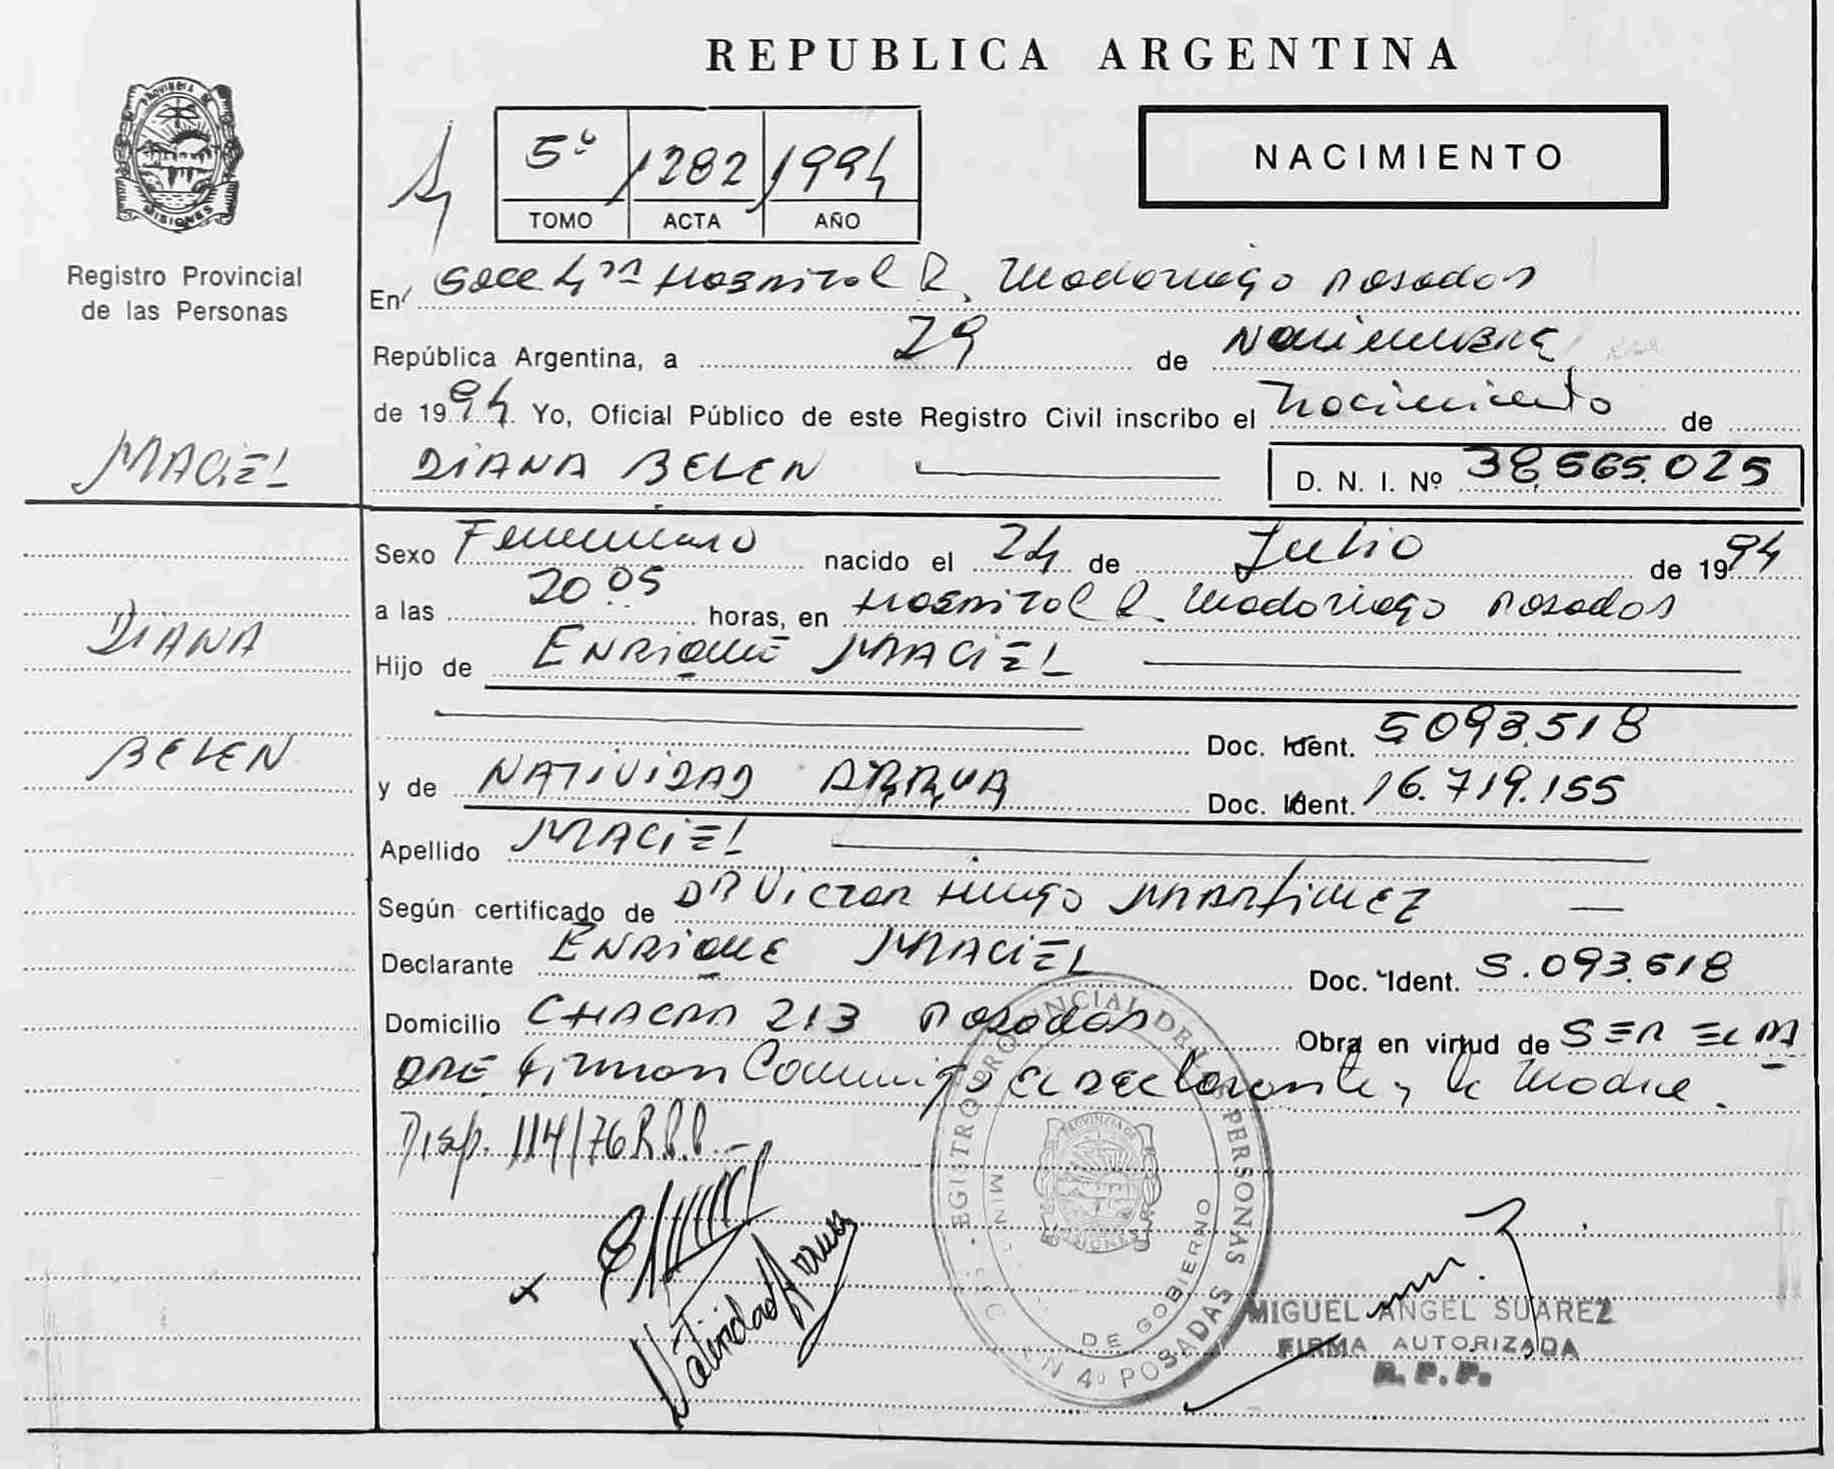 REPUBLICA ARGENTINA
PROVINCIA DE
MISIONES
Registro Provincial
de las Personas
5º 1282 1994
TOMO ACTA AÑO
NACIMIENTO
En Secc 4ta Hospital R. Madariaga Posadas
República Argentina, a 29 de Noviembre
de 1994 Yo, Oficial Público de este Registro Civil inscribo el Nacimiento de
MACIEL
DIANA BELEN D. N. I. Nº 38.565.025
Sexo Femenino nacido el 24 de Julio de 1994
a las 20 05 horas, en Hospital R. Madariaga Posadas
DIANA
Hijo de ENRIQUE MACIEL
Doc. Ident. 5.093.518
BELEN
y de NATIVIDAD ARRUA Doc. Ident. 16.719.155
Apellido MACIEL
Según certificado de DR Victor Hugo MARTINEZ
Declarante ENRIQUE MACIEL Doc. Ident. 5.093.518
Domicilio CHACRA 213 Posadas Obra en virtud de SER EL PA
DRE firman Conmigo el declarante y la Madre.
Disp. 114/76 R.P.P.
Natividad Arrua
REGISTRO PROVINCIAL DE LAS PERSONAS
MIN. DE GOBIERNO
SECC Nº 4 POSADAS
PROVINCIA DE
MISIONES
MIGUEL ANGEL SUAREZ
FIRMA AUTORIZADA
R. P. P.